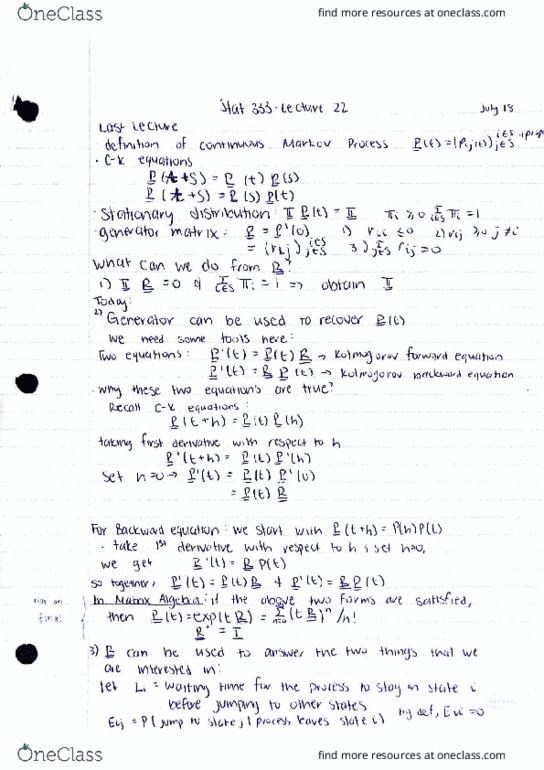 OneClass
find more resources at oneclass.com
Stat 333 - Lecture 22 July 18
Last Lecture
definition of continuous Markov Process P(t) = (Pij(t)) i∈S j∈S
· C-K equations
P(t+s) = P(t) P(s)
P(t+s) = P(s) P(t)
· Stationary distribution: π P(t) = π πi ≥ 0 Σi∈S πi = 1
· generator matrix: R = P'(0) 1) rii ≤ 0 2) rij ≥ 0 j ≠ i
= (rij) i∈S j∈S 3) Σj∈S rij = 0
What can we do from R?
1) π R = 0 & Σi∈S πi = 1 => obtain π
Today:
2) Generator can be used to recover P(t)
we need some tools here:
Two equations: P'(t) = P(t) R → Kolmogorov forward equation
P'(t) = R P(t) → Kolmogorov backward equation
· why these two equation's are true?
Recall C-K equations:
P(t+h) = P(t) P(h)
taking first derivative with respect to h
P'(t+h) = P(t) P'(h)
Set h=0 → P'(t) = P(t) P'(0)
= P(t) R
For Backward equation: we start with P(t+h) = P(h)P(t)
- take 1st derivative with respect to h & set h=0,
we get P'(t) = R P(t)
so together, P'(t) = P(t) R & P'(t) = R P(t)
In Matrix Algebra: if the above two forms are satisfied,
not on final
then P(t) = exp(t R) = Σ (t R)ⁿ/n!
R⁰ = I
3) R can be used to answer the two things that we
are interested in:
let Li = waiting time for the process to stay in state i
before jumping to other states
Eij = P( jump to state j | process leaves state i) by def, Eii = 0
OneClass
find more resources at oneclass.com